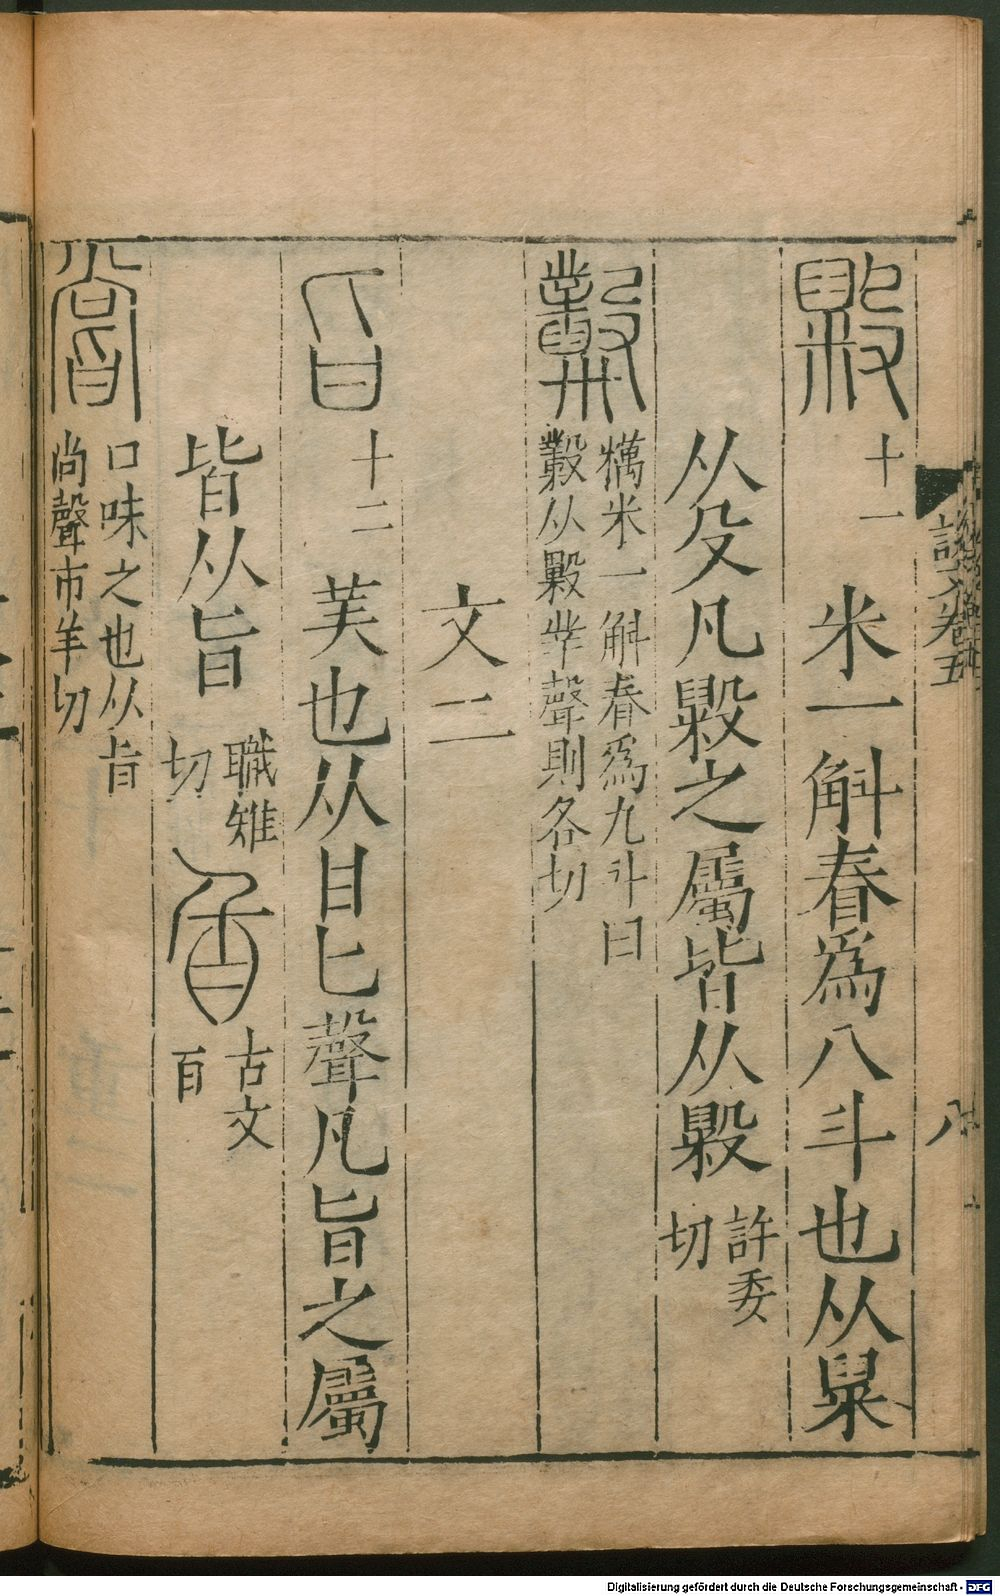 說文卷五
八
毇 十一 米一斛舂爲八斗也从
从殳凡毇之屬皆从毇 許委
切
糳 糲米一斛舂爲九斗曰
糳从毇丵聲則各切
文二
旨 十二 美也从甘匕聲凡旨之屬
皆从旨 職雉
切
古文
旨
嘗 口味之也从旨
尚聲市羊切
Digitalisierung gefördert durch die Deutsche Forschungsgemeinschaft - DFG